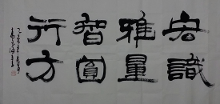 宏識
雅量
智圓
行方